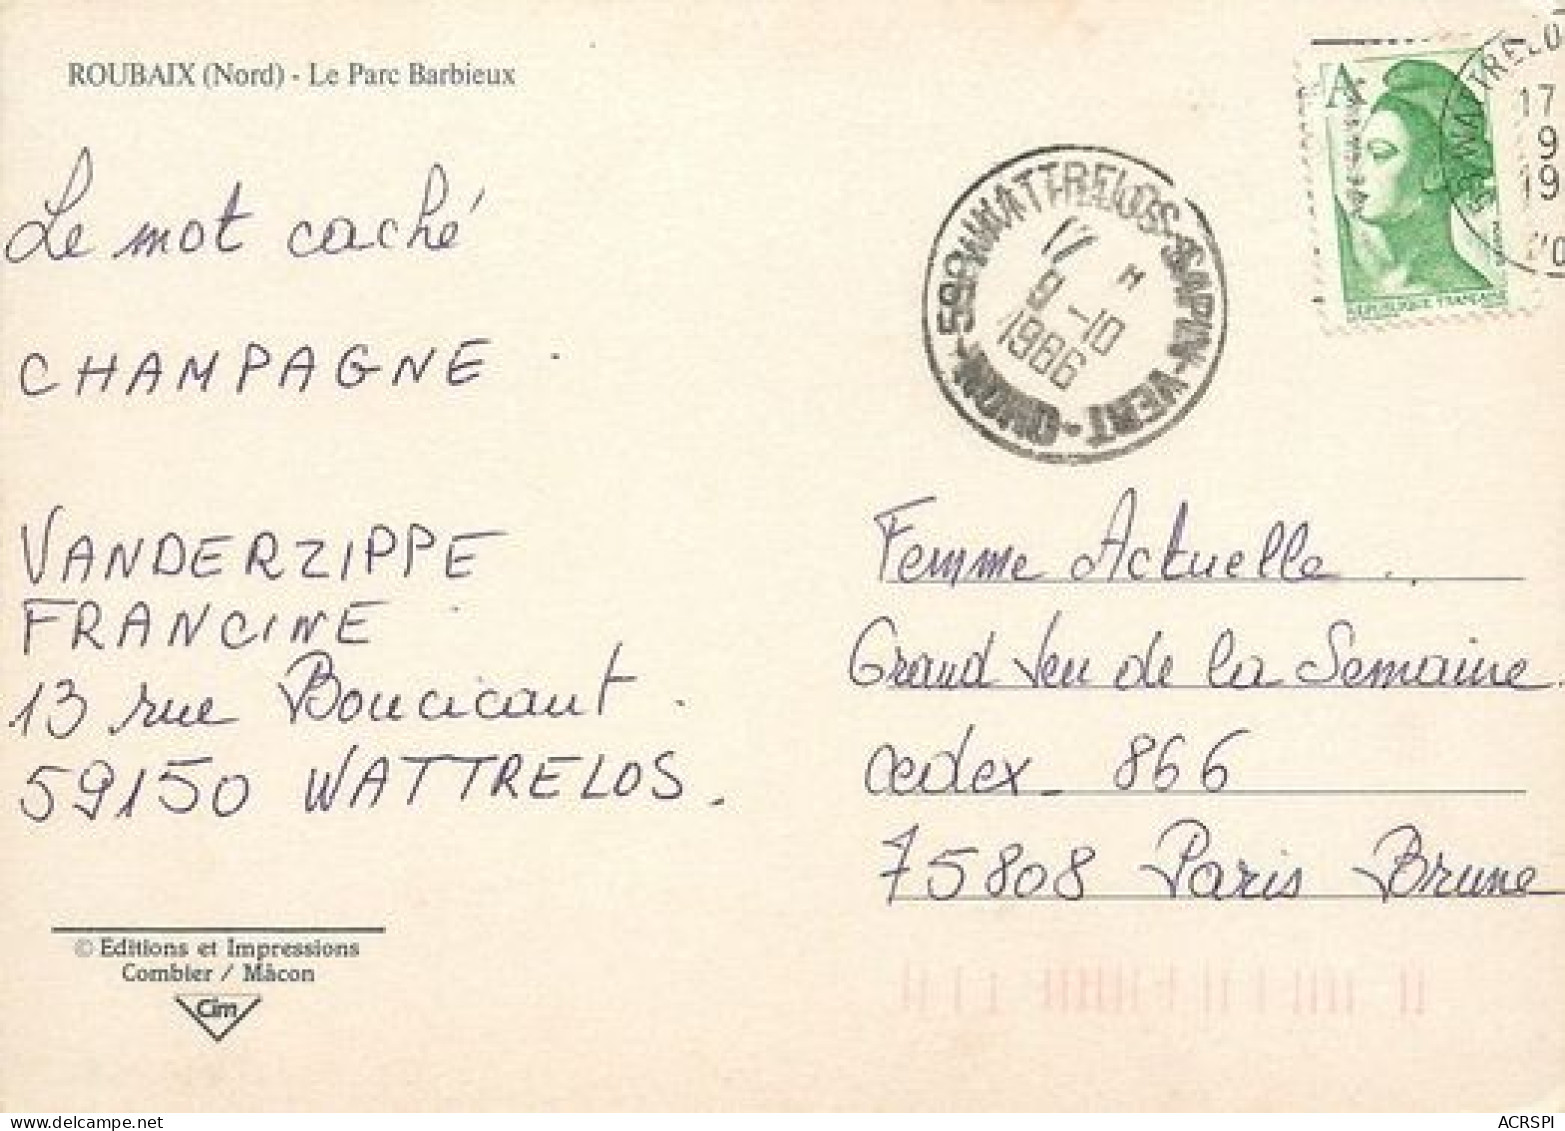 ROUBAIX (Nord) - Le Parc Barbieux
Le mot caché
CHAMPAGNE
VANDERZIPPE
FRANCINE
13 rue Boucicaut
59150 WATTRELOS.
© Editions et Impressions
Combier / Mâcon
Cim
A
REPUBLIQUE FRANÇAISE
WATTRELO
17
9
19
59 WATTRELOS-SAPIN-VERT
17 H
9-10
1986
Femme Actuelle
Grand Jeu de la Semaine
cedex 866
75808 Paris Brune
ACRSPI